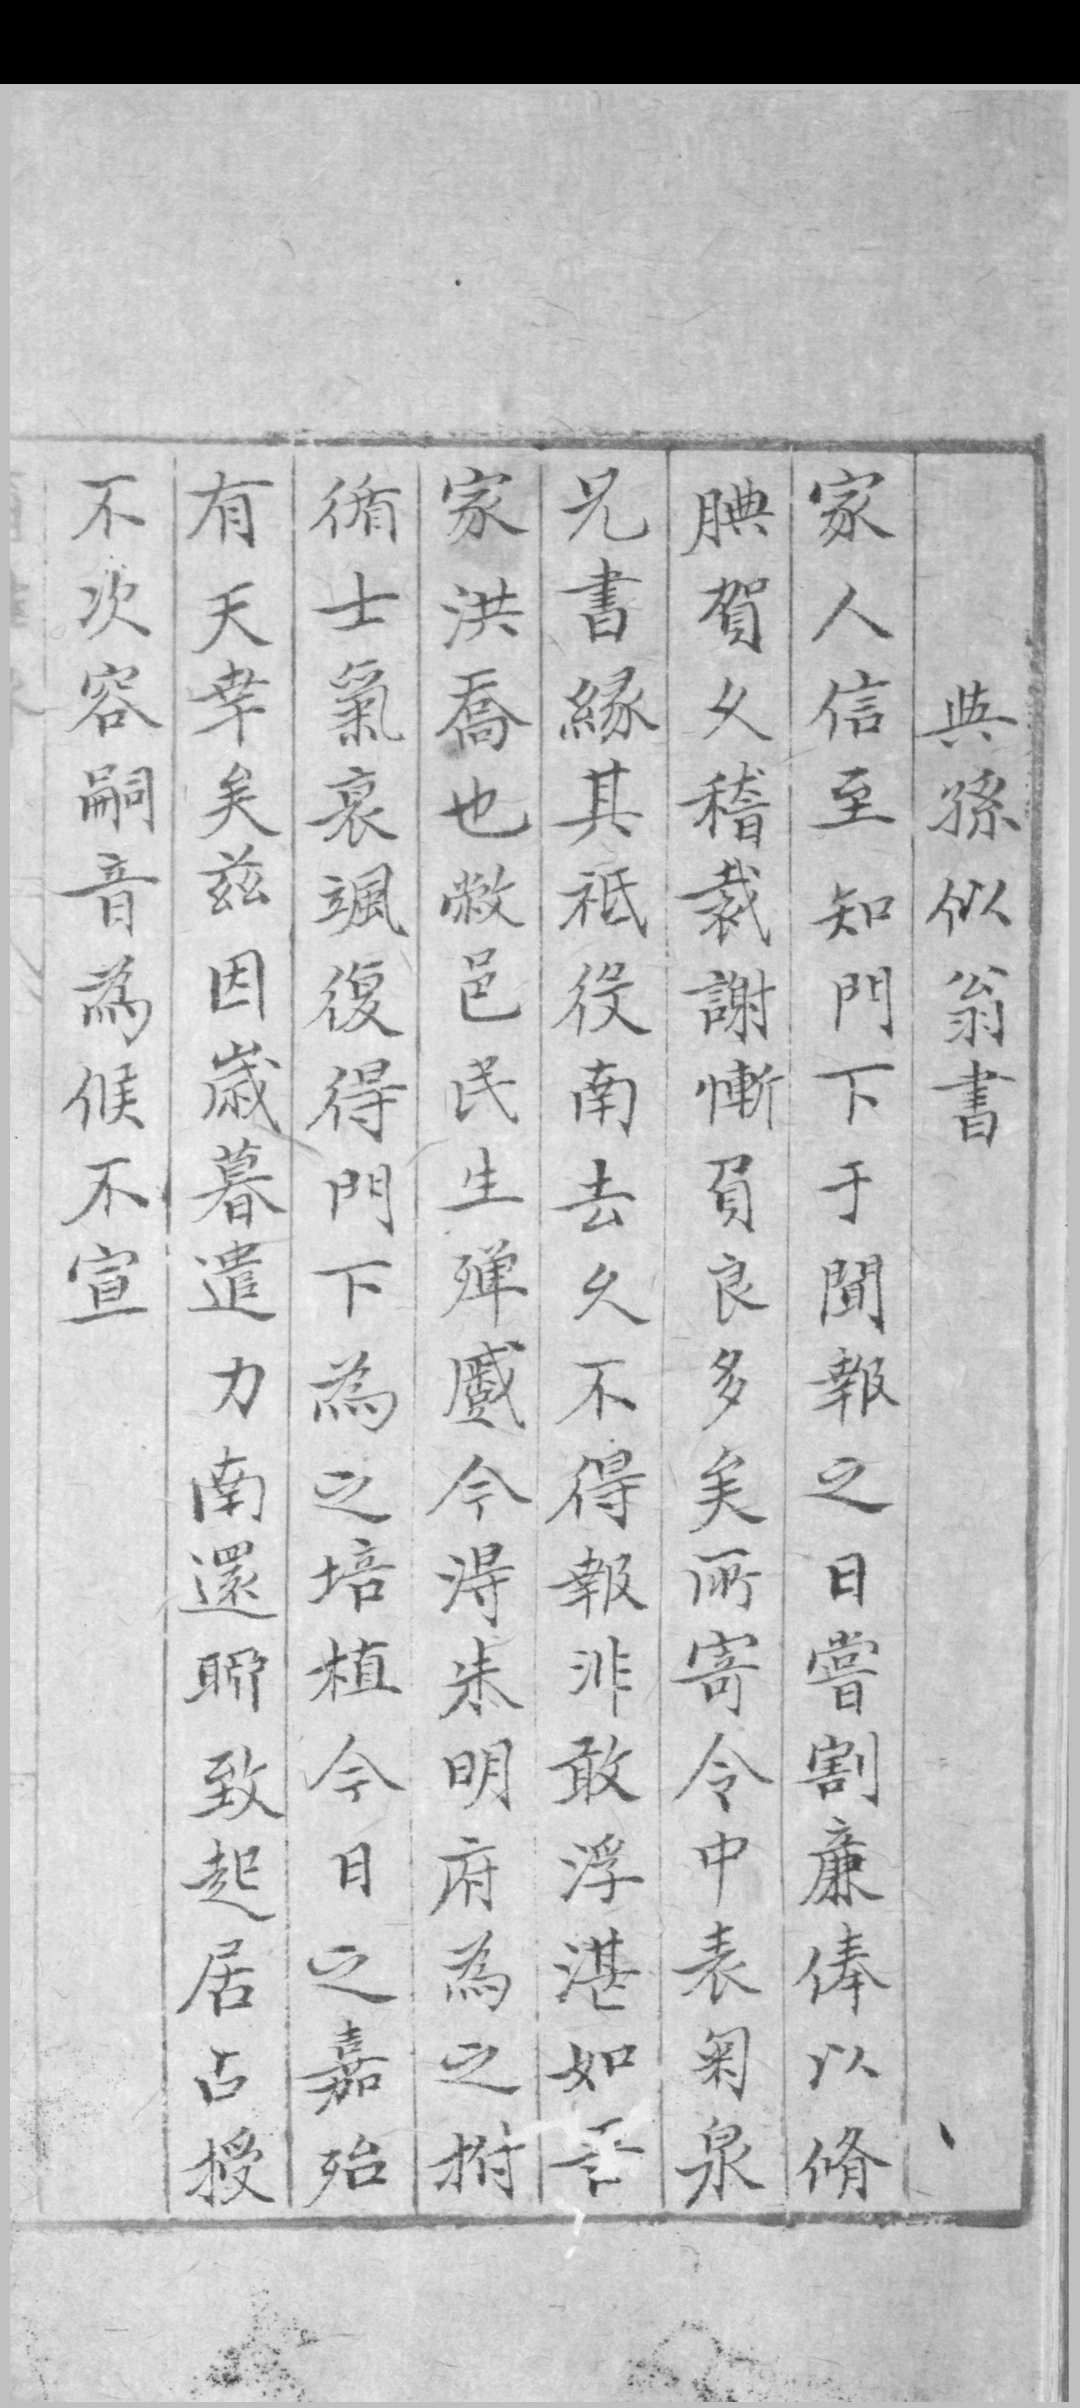 與孫似翁書
家人信至知門下于聞報之日嘗割廉俸以脩
腆賀久稽裁謝慚負良多矣所寄令中表菊泉
兄書緣其祗役南去久不得報非敢浮湛如
家洪喬也敝邑民生殫蹙今得朱明府為之拊
循士氣衰颯復得門下為之培植今日之嘉殆
有天幸矣茲因歲暮遣力南還聊致起居占授
不次容嗣音為候不宣